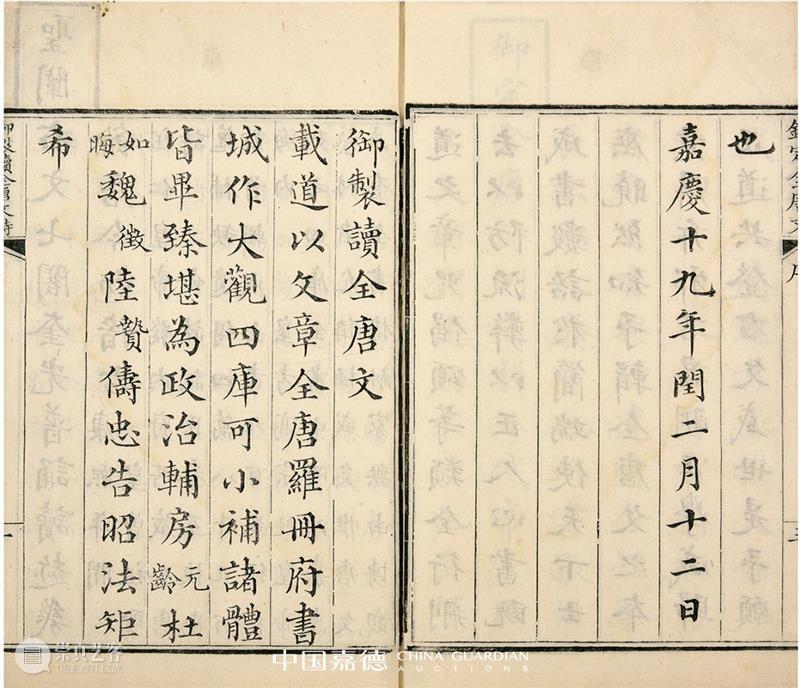 也
嘉慶十九年閏二月十二日
御製讀全唐文
載道以文章全唐羅冊府書
城作大觀四庫可小補諸體
皆畢臻堪為政治輔房元齡杜
如晦魏徵陸贄儔忠告昭法矩
希
崇真艺客
中国嘉德 CHINA GUARDIAN
AUCTIONS